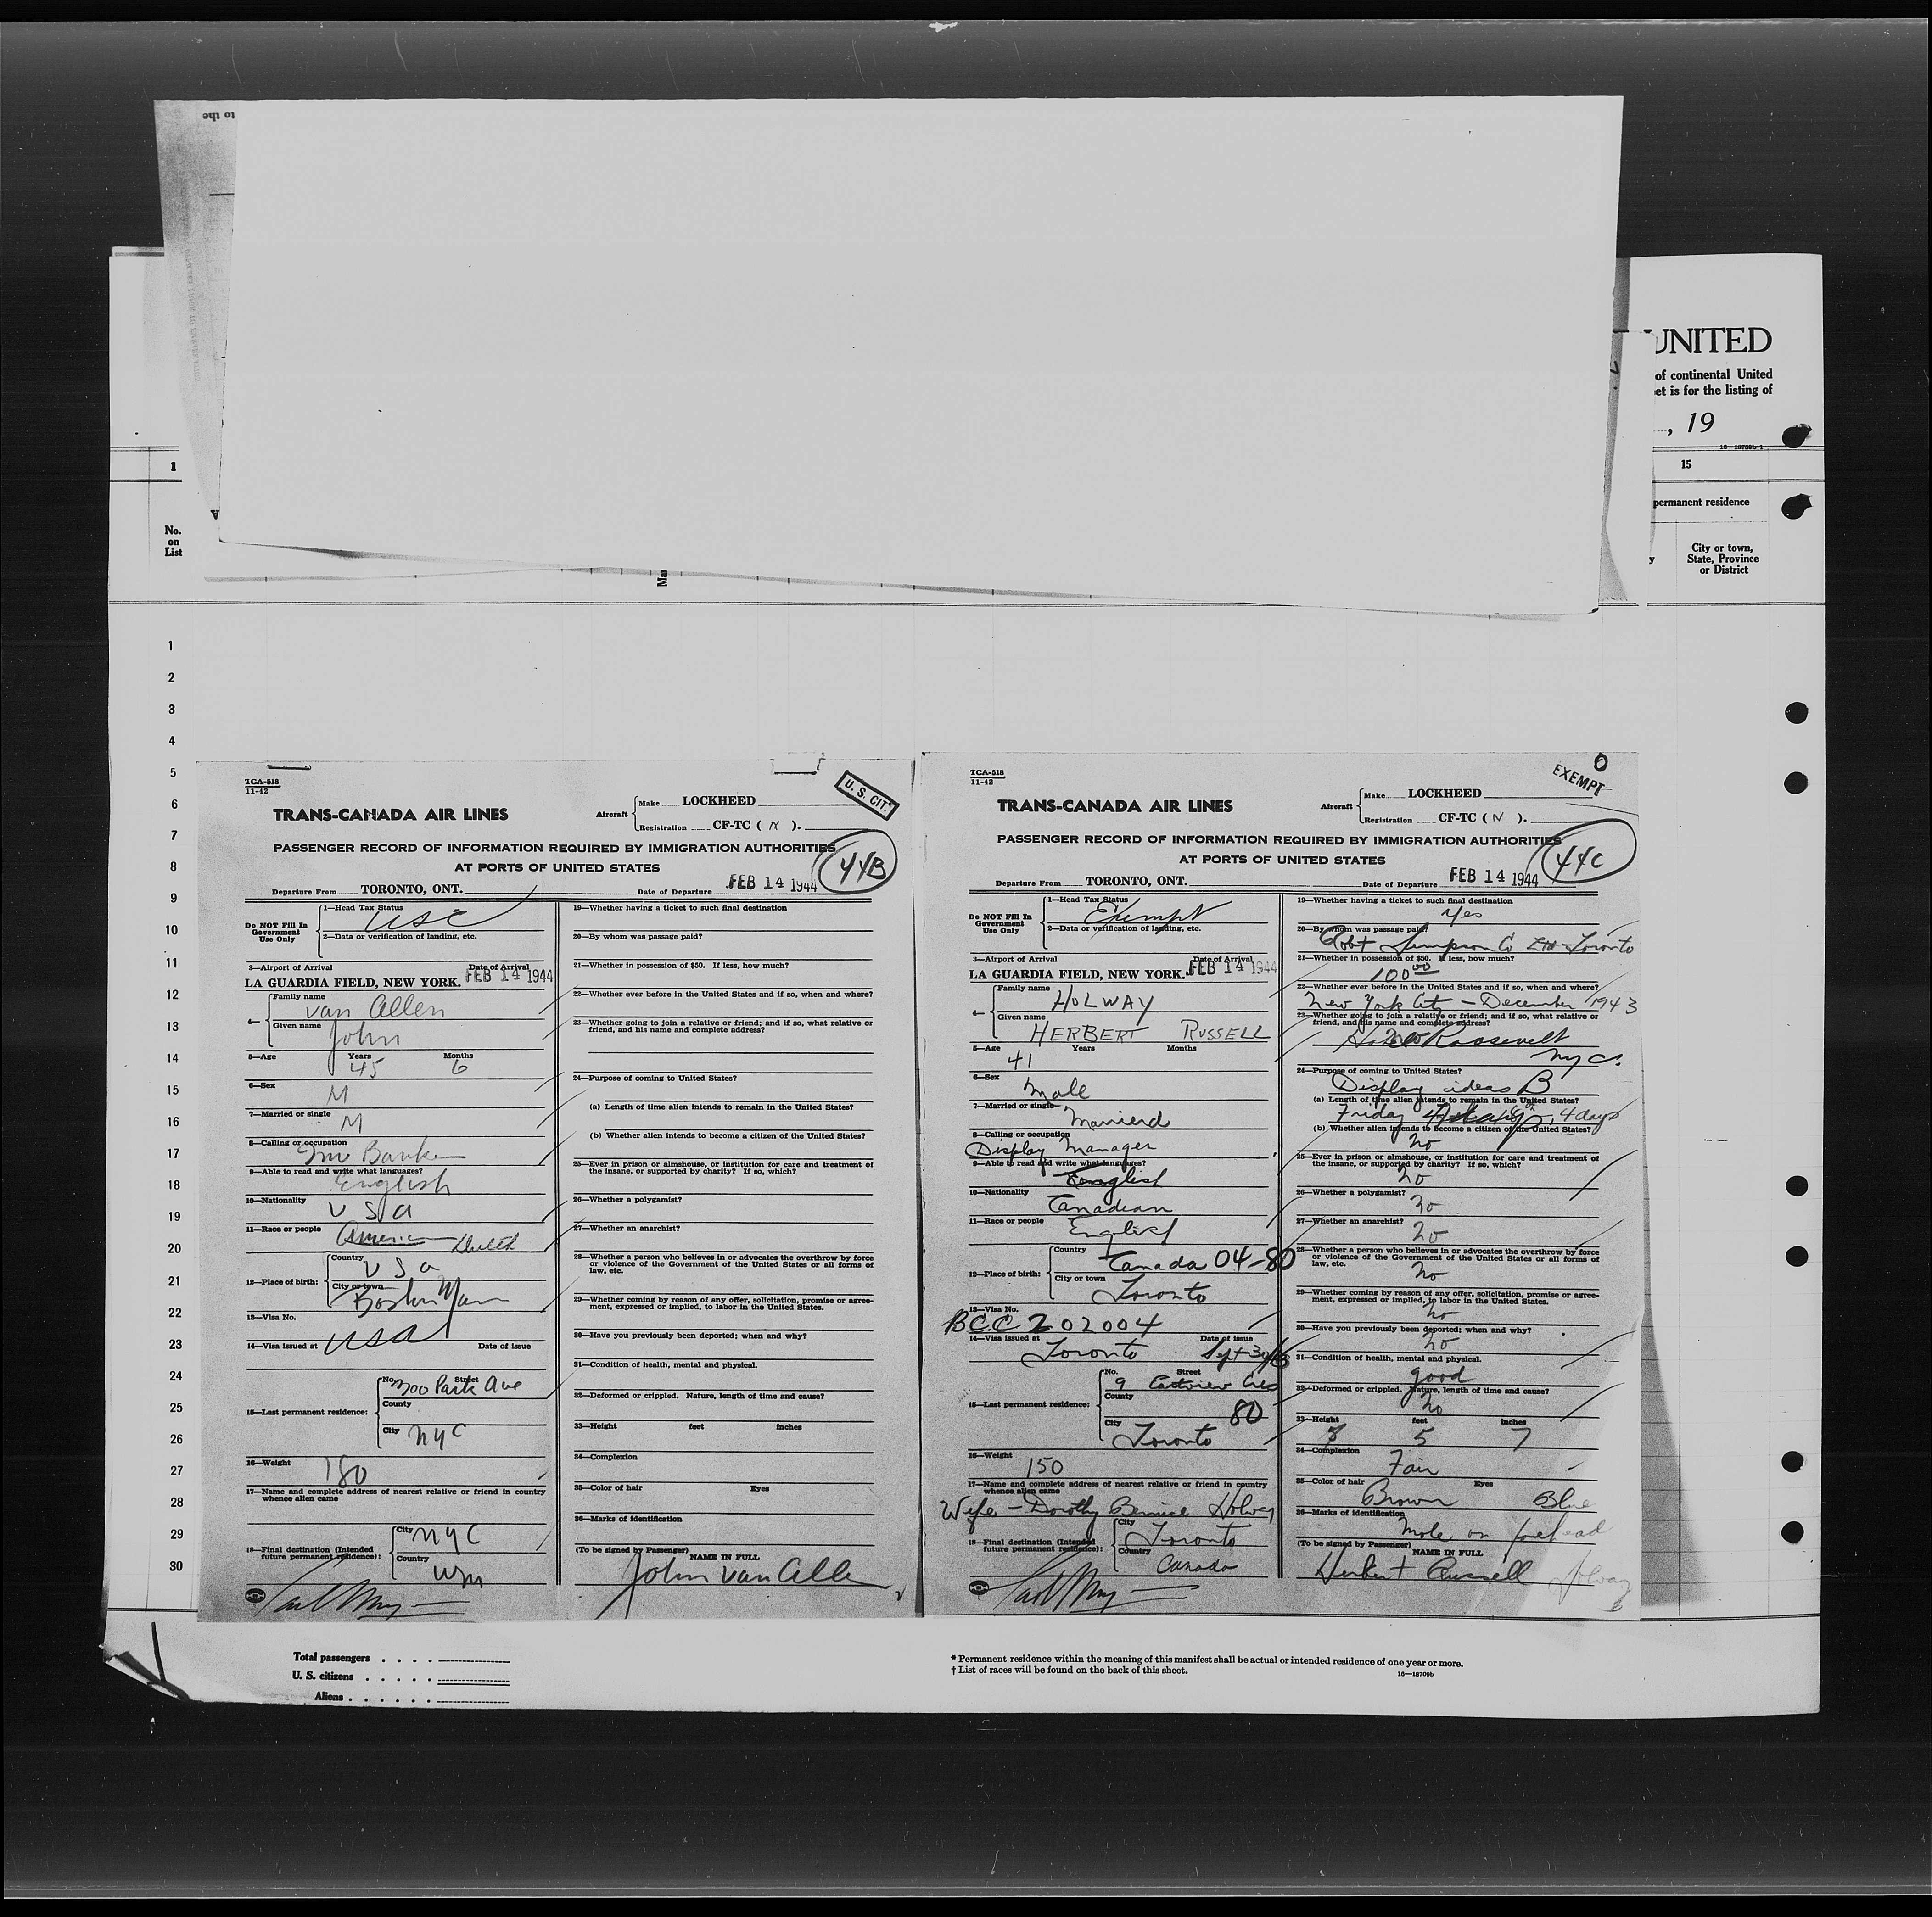 to the
UNITED
of continental United
et is for the listing of
, 19
16—18709b-1
1
15
permanent residence
No.
on
List
City or town,
State, Province
or District
y
Mar
1
2
3
4
5
6
7
8
9
10
11
12
13
14
15
16
17
18
19
20
21
22
23
24
25
26
27
28
29
30
TCA-518
11-42
U. S. CIT.
TRANS-CANADA AIR LINES
Aircraft
Make LOCKHEED
Registration CF-TC ( N ).
PASSENGER RECORD OF INFORMATION REQUIRED BY IMMIGRATION AUTHORITIES
AT PORTS OF UNITED STATES
44B
Departure From TORONTO, ONT. Date of Departure FEB 14 1944
Do NOT Fill In
Government
Use Only
1—Head Tax Status
USC
2—Data or verification of landing, etc.
3—Airport of Arrival Date of Arrival
LA GUARDIA FIELD, NEW YORK. FEB 14 1944
4—
Family name
van Allen
Given name
John
5—Age Years Months
45 6
6—Sex
M
7—Married or single
M
8—Calling or occupation
Inv Banker
9—Able to read and write what languages?
English
10—Nationality
U S A
11—Race or people
American Dutch
12—Place of birth:
Country
U S a
City or town
Boston Mass
13—Visa No.
USA
14—Visa issued at Date of issue
15—Last permanent residence:
No. Street
300 Park Ave
County
City NYC
16—Weight
180
17—Name and complete address of nearest relative or friend in country
whence alien came
18—Final destination (Intended
future permanent residence):
City NYC
Country
USA
19—Whether having a ticket to such final destination
20—By whom was passage paid?
21—Whether in possession of $50. If less, how much?
22—Whether ever before in the United States and if so, when and where?
23—Whether going to join a relative or friend; and if so, what relative or
friend, and his name and complete address?
24—Purpose of coming to United States?
(a) Length of time alien intends to remain in the United States?
(b) Whether alien intends to become a citizen of the United States?
25—Ever in prison or almshouse, or institution for care and treatment of
the insane, or supported by charity? If so, which?
26—Whether a polygamist?
27—Whether an anarchist?
28—Whether a person who believes in or advocates the overthrow by force
or violence of the Government of the United States or all forms of
law, etc.
29—Whether coming by reason of any offer, solicitation, promise or agree-
ment, expressed or implied, to labor in the United States.
30—Have you previously been deported; when and why?
31—Condition of health, mental and physical.
32—Deformed or crippled. Nature, length of time and cause?
33—Height feet inches
34—Complexion
35—Color of hair Eyes
36—Marks of identification
(To be signed by Passenger)
NAME IN FULL
John van Allen
TCA-518
11-42
0
EXEMPT
TRANS-CANADA AIR LINES
Aircraft
Make LOCKHEED
Registration CF-TC ( N ).
PASSENGER RECORD OF INFORMATION REQUIRED BY IMMIGRATION AUTHORITIES
AT PORTS OF UNITED STATES
44C
Departure From TORONTO, ONT. Date of Departure FEB 14 1944
Do NOT Fill In
Government
Use Only
1—Head Tax Status
Exempt
2—Data or verification of landing, etc.
3—Airport of Arrival Date of Arrival
LA GUARDIA FIELD, NEW YORK. FEB 14 1944
4—
Family name
HOLWAY
Given name
HERBERT RUSSELL
5—Age Years Months
41
6—Sex
Male
7—Married or single
Married
8—Calling or occupation
Display Manager
9—Able to read and write what languages?
English
10—Nationality
Canadian
11—Race or people
English
12—Place of birth:
Country
Canada 04-80
City or town
Toronto
13—Visa No.
BCC 202004
14—Visa issued at Date of issue
Toronto Sept 30/43
15—Last permanent residence:
No. Street
9 Eastview Cres
County
80
City
Toronto
16—Weight
150
17—Name and complete address of nearest relative or friend in country
whence alien came
Wife - Dorothy Bernice Holway
18—Final destination (Intended
future permanent residence):
City
Toronto
Country
Canada
19—Whether having a ticket to such final destination
Yes
20—By whom was passage paid?
Robt Simpson Co Ltd Toronto
21—Whether in possession of $50. If less, how much?
100 00
22—Whether ever before in the United States and if so, when and where?
New York City - December 1943
23—Whether going to join a relative or friend; and if so, what relative or
friend, and his name and complete address?
Hotel Roosevelt
NYC.
24—Purpose of coming to United States?
Display ideas B
(a) Length of time alien intends to remain in the United States?
Friday 4 days
(b) Whether alien intends to become a citizen of the United States?
no
25—Ever in prison or almshouse, or institution for care and treatment of
the insane, or supported by charity? If so, which?
no
26—Whether a polygamist?
no
27—Whether an anarchist?
no
28—Whether a person who believes in or advocates the overthrow by force
or violence of the Government of the United States or all forms of
law, etc.
no
29—Whether coming by reason of any offer, solicitation, promise or agree-
ment, expressed or implied, to labor in the United States.
no
30—Have you previously been deported; when and why?
no
31—Condition of health, mental and physical.
good
32—Deformed or crippled. Nature, length of time and cause?
no
33—Height feet inches
5 7
34—Complexion
Fair
35—Color of hair Eyes
Brown Blue
36—Marks of identification
mole on forehead
(To be signed by Passenger)
NAME IN FULL
Herbert Russell Holway
Total passengers . . . .
U. S. citizens . . . . .
Aliens . . . . . .
* Permanent residence within the meaning of this manifest shall be actual or intended residence of one year or more.
† List of races will be found on the back of this sheet.
16—18709b